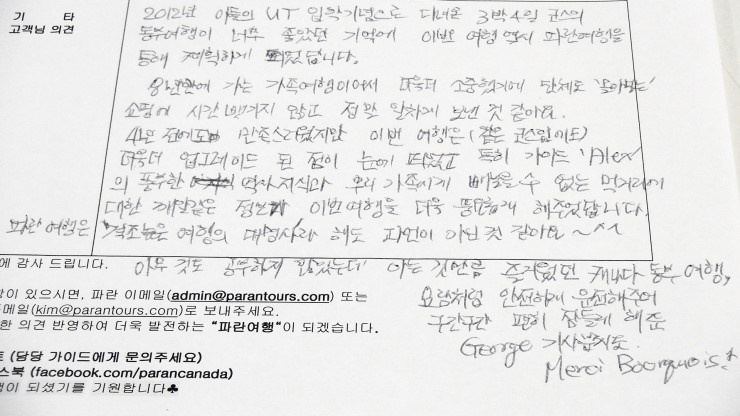 기 타
고객님 의견
2012년 아들의 UT 입학기념으로 다녀온 3박4일 코스의
동부여행이 너무 좋았던 기억에 이번 여행 역시 파란여행을
통해 계획하게 되었답니다.
만에 가는 가족여행이어서 더욱더 소중했기에 단체로
쇼핑에 시간 뺏기지 않고 알차게 보낸 것 같아요.
4년 전에도 만족스러웠지만 이번 여행은 (같은 코스임에도)
더욱더 업그레이드 된 점이 눈에 띄었고 특히 가이드 'Alex'
의 풍부한 역사지식과 우리 가족에게 빼놓을 수 없는 먹거리에
대한 깨알같은 정보가 이번 여행을 더욱 풍요롭게 해주었답니다.
파란 여행은 격조높은 여행의 대명사라 해도 과언이 아닌 것 같아요 ~ ^^
에 감사 드립니다.
아무 것도 공부하지 않았는데 아는 것만큼 즐거웠던 캐나다 동부 여행,
요람처럼 안전하게 운전해주어
구간구간 편히 잠들게 해준
George 기사분께도
Merci Bourquois!
이 있으시면, 파란 이메일(admin@parantours.com) 또는
이메일(kim@parantours.com)로 보내주세요.
한 의견 반영하여 더욱 발전하는 "파란여행"이 되겠습니다.
트 (담당 가이드에게 문의주세요)
스북 (facebook.com/parancanada)
행이 되셨기를 기원합니다♣